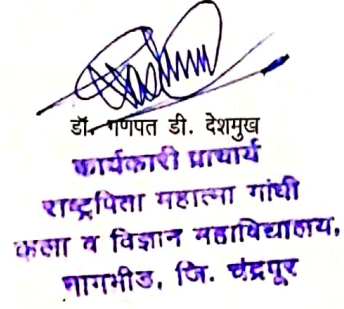 डॉ. गणपत डी. देशमुख
कार्यकारी प्राचार्य
राष्ट्रपिता महात्मा गांधी
कला व विज्ञान महाविद्यालय,
नागभीड, जि. चंद्रपूर